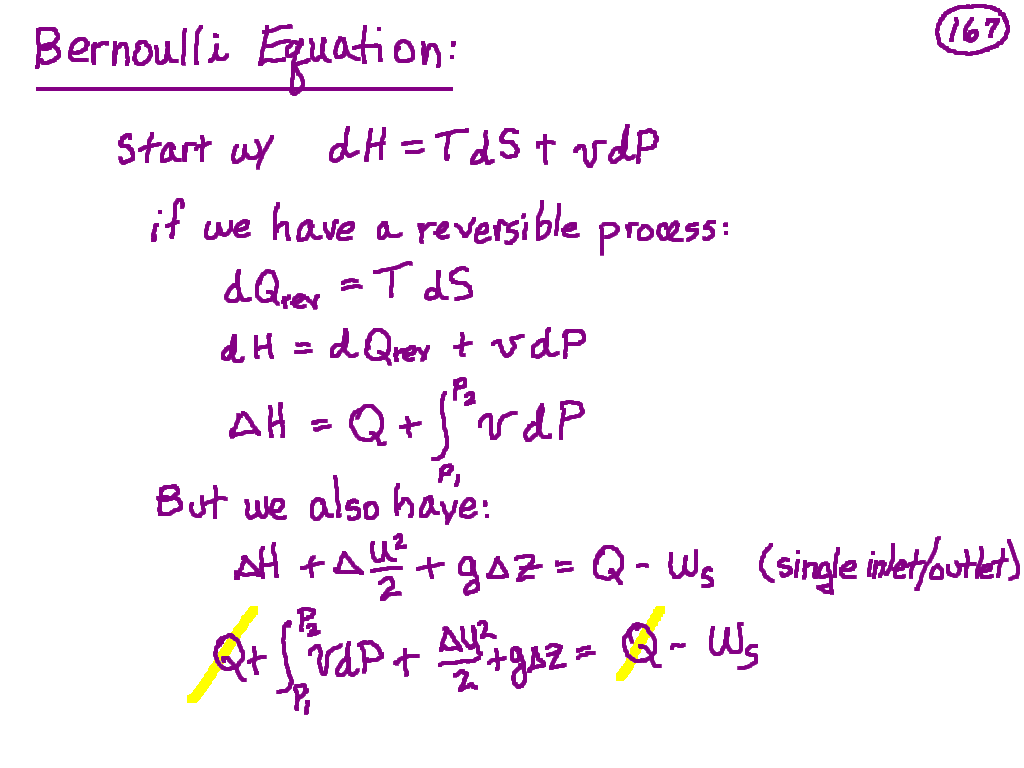 Bernoulli Equation:
167
Start w/ dH = TdS + vdP
if we have a reversible process:
dQrev = T dS
dH = dQrev + vdP
ΔH = Q + ∫_{P₁}^{P₂} vdP
But we also have:
ΔH + Δ u²/2 + gΔz = Q - Ws (single inlet/outlet)
Q + ∫_{P₁}^{P₂} vdP + Δu²/2 + gΔz = Q - Ws